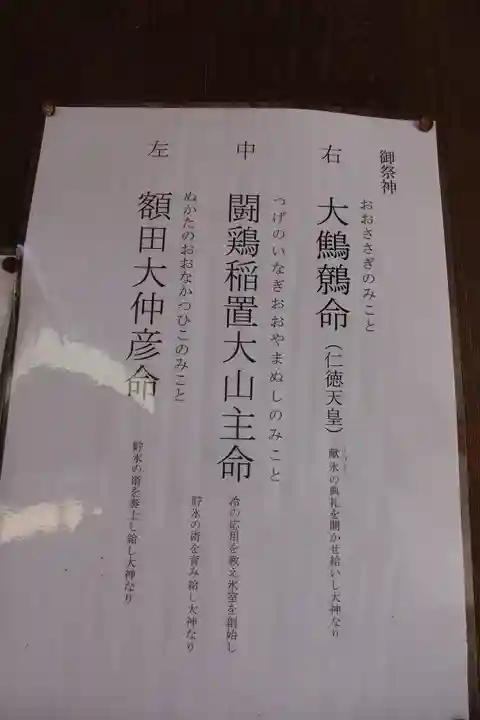 御祭神
おおささぎのみこと
右 大鷦鷯命(仁徳天皇) 献氷の典礼を開かせ給いし大神なり
つげのいなぎおおやまぬしのみこと
中 闘鶏稲置大山主命 冷の応用を教え氷室を創始し
貯氷の術を育み給し大神なり
ぬかたのおおなかつひこのみこと
左 額田大仲彦命 貯氷の術を奏上し給し大神なり